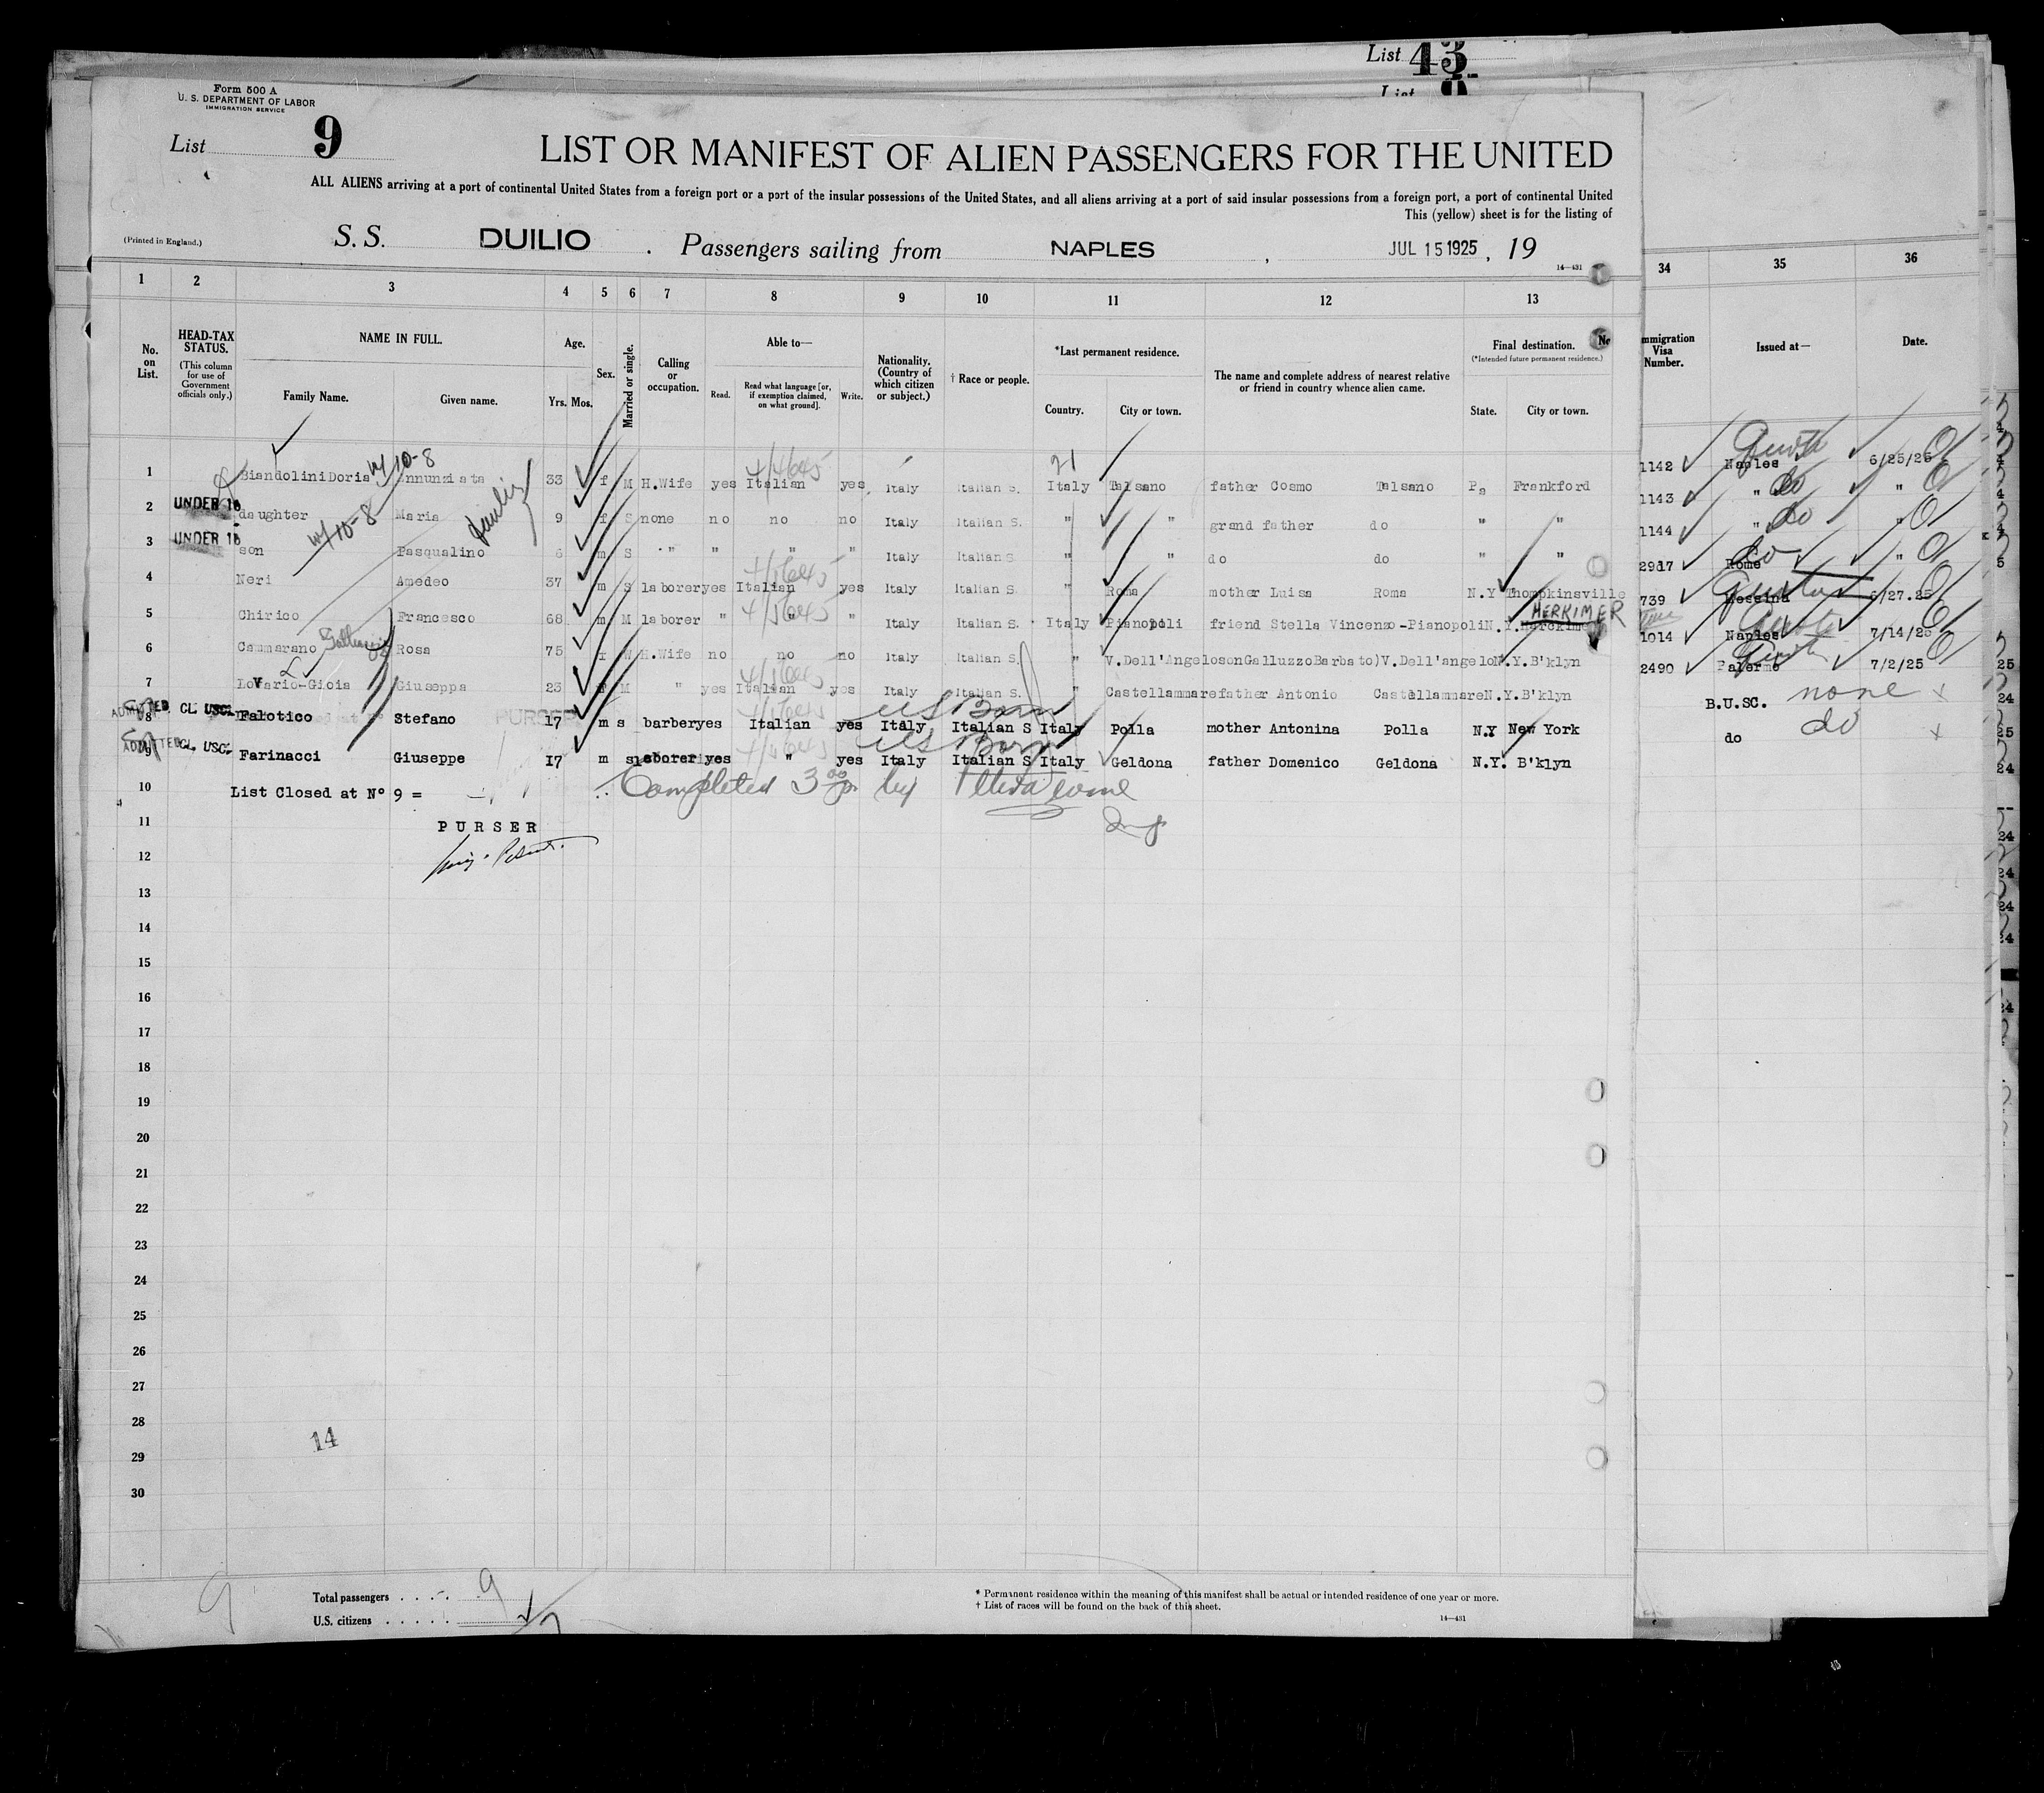 List 43
List 9
Form 500 A
U. S. DEPARTMENT OF LABOR
IMMIGRATION SERVICE
List 9
LIST OR MANIFEST OF ALIEN PASSENGERS FOR THE UNITED
ALL ALIENS arriving at a port of continental United States from a foreign port or a port of the insular possessions of the United States, and all aliens arriving at a port of said insular possessions from a foreign port, a port of continental United
This (yellow) sheet is for the listing of
(Printed in England.)
S. S. DUILIO . Passengers sailing from NAPLES , JUL 15 1925 , 19
14—431
1 2 3 4 5 6 7 8 9 10 11 12 13 34 35 36
No. on List.
HEAD-TAX STATUS.
(This column for use of Government officials only.)
NAME IN FULL.
Family Name. Given name.
Age.
Yrs. Mos.
Sex.
Married or single.
Calling or occupation.
Able to—
Read. Read what language [or, if exemption claimed, on what ground]. Write.
Nationality. (Country of which citizen or subject.)
† Race or people.
*Last permanent residence.
Country. City or town.
The name and complete address of nearest relative or friend in country whence alien came.
Final destination.
(*Intended future permanent residence.)
State. City or town.
mmigration Visa Number.
Issued at—
Date.
w/10-8
1 Biandolini Doris Annunziata 33 f M H.Wife yes Italian yes Italy Italian S. Italy Talsano father Cosmo Talsano Pa Frankford 1142 Naples 6/25/25
2 UNDER 16 daughter Maria 9 f S none no no no Italy Italian S. " " grand father do " " 1143 " do "
w/10-8
3 UNDER 16 son Pasqualino 6 m S " " " " Italy Italian S " " do do " " 1144 " do "
4 Neri Amedeo 37 m S laborer yes Italian yes Italy Italian S. " Roma mother Luisa Roma N.Y Thompkinsville 2917 Rome "
HERKIMER
5 Chirico Francesco 68 m M laborer " " " Italy Italian S. Italy Pianopoli friend Stella Vincenzo-Pianopoli N.Y. 739 Messina 6/27.25
6 Cammarano Rosa 75 f W H.Wife no no no Italy Italian S. " V.Dell'Angelo son Galluzzo Barbato) V.Dell'angelo N.Y. B'klyn 1014 Naples 7/14/25
7 LoVario-Gioia Giuseppa 23 f M " yes Italian yes Italy Italian S. " Castellammare father Antonio Castellammare N.Y. B'klyn 2490 Palermo 7/2/25
US Born
8 ADMITTED CL USC. Falotico Stefano 17 m s barber yes Italian yes Italy Italian S Italy Polla mother Antonina Polla N.Y New York B.U.SC. none
US Born
9 ADMITTED CL. USC. Farinacci Giuseppe 17 m s laborer yes " yes Italy Italian S Italy Geldona father Domenico Geldona N.Y. B'klyn do do
10 List Closed at N° 9 = Completed 3 by
11 PURSER
12
13
14
15
16
17
18
19
20
21
22
23
24
25
26
27
28
14
29
30
9
Total passengers . . . . 9
U.S. citizens . . . . .
* Permanent residence within the meaning of this manifest shall be actual or intended residence of one year or more.
† List of races will be found on the back of this sheet.
14—431